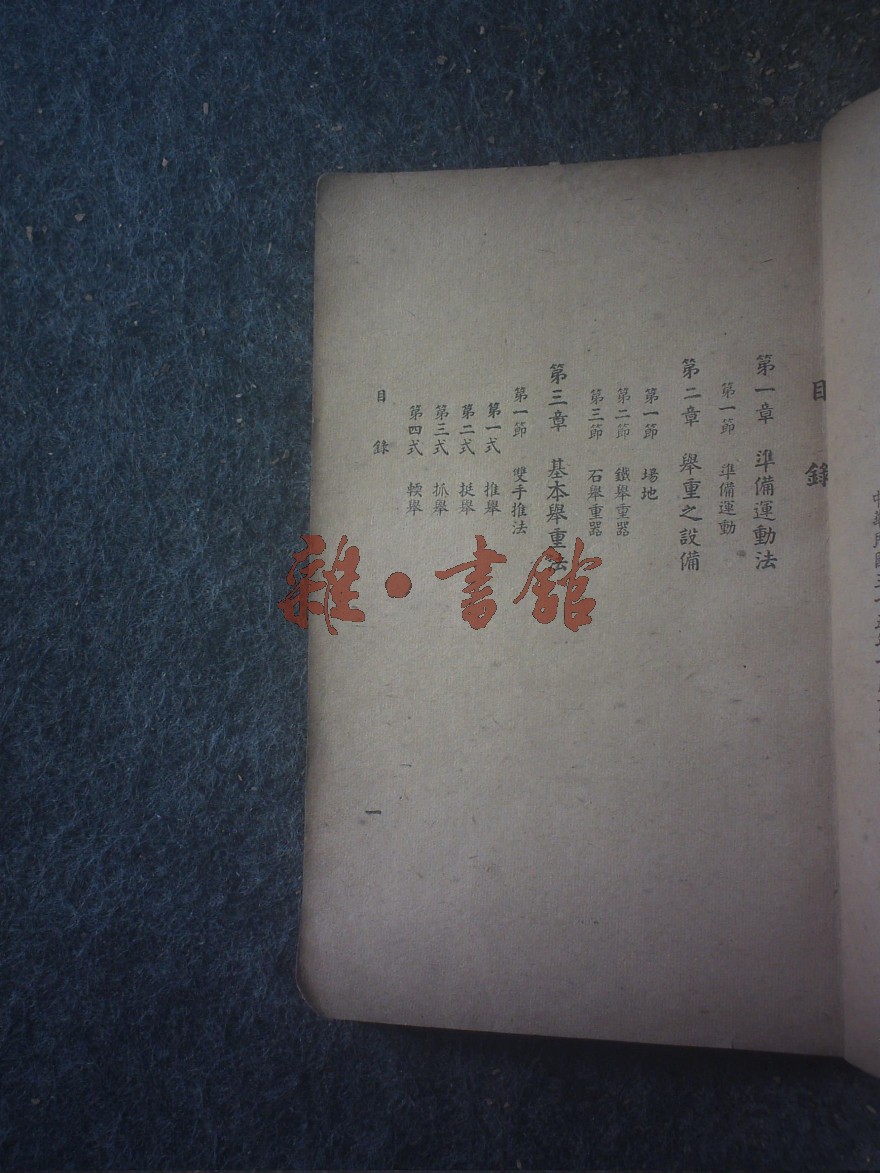 中華民國三十
目錄
第一章 準備運動法
第一節 準備運動
第二章 舉重之設備
第一節 場地
第二節 鐵舉重器
第三節 石舉重器
第三章 基本舉重法
第一節 雙手推法
第一式 推舉
第二式 挺舉
第三式 抓舉
第四式 輭舉
目錄
一
雜·書館